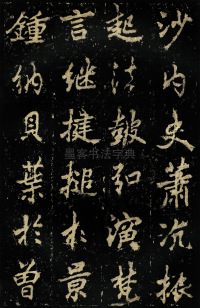 沙内史蕭沉振
起法鼓弘演梵
言继揵槌於景
鍾納貝葉於曾
墨客书法字典